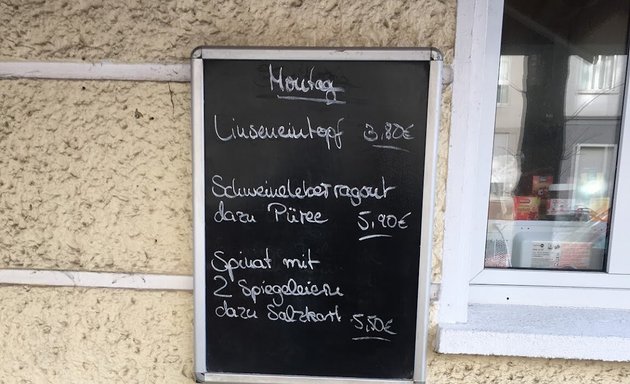 Montag
Linseneintopf 3,80€
Schweineleberragout
dazu Püree 5,90€
Spinat mit
2 Spiegeleiern
dazu Salzkart. 5,50€